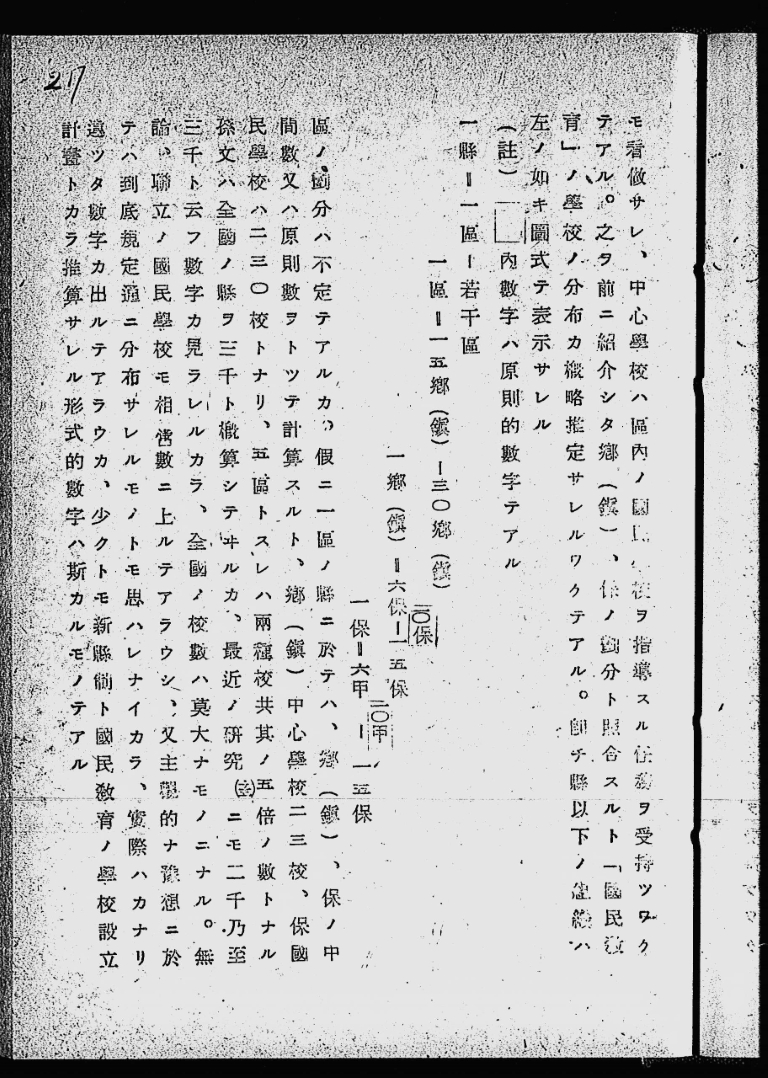 217
モ看做サレ、中心學校ハ區內ノ國民學校ヲ指導スル任務ヲ受持ツワケ
テアル。之ヲ前ニ紹介シタ鄕(鎭)、保ノ劃分ト照合スルト「國民敎
育」ノ學校ノ分布カ槪略推定サレルワケテアル。卽チ縣以下ノ連繫ハ
左ノ如キ圖式テ表示サレル
(註)□內數字ハ原則的數字テアル
一縣‖一區ー若干區
一區‖一五鄕(鎭)ー三〇鄕(鎭)
一鄕(鎭)‖六保ー一五保
一〇保
一保‖六甲ー一五保
一〇甲
區ノ劃分ハ不定テアルカ、假ニ一區ノ縣ニ於テハ、鄕(鎭)、保ノ中
間數又ハ原則數ヲトツテ計算スルト、鄕(鎭)中心學校二三校、保國
民學校ハ二三〇校トナリ、五區トスレハ兩種校共其ノ五倍ノ數トナル
孫文ハ全國ノ縣ヲ三千ト槪算シテヰルカ、最近ノ硏究ニモ二千乃至
三千ト云フ數字カ見ラレルカラ、全國ノ校數ハ莫大ナモノニナル。無
論、聯立ノ國民學校モ相當數ニ上ルテアラウシ、又主觀的ナ豫想ニ於
テハ到底規定通ニ分布サレルモノトモ思ハレナイカラ、實際ハカナリ
違ツタ數字カ出ルテアラウカ、少クトモ新縣制ト國民敎育ノ學校設立
計畫トカラ推算サレル形式的數字ハ斯カルモノテアル